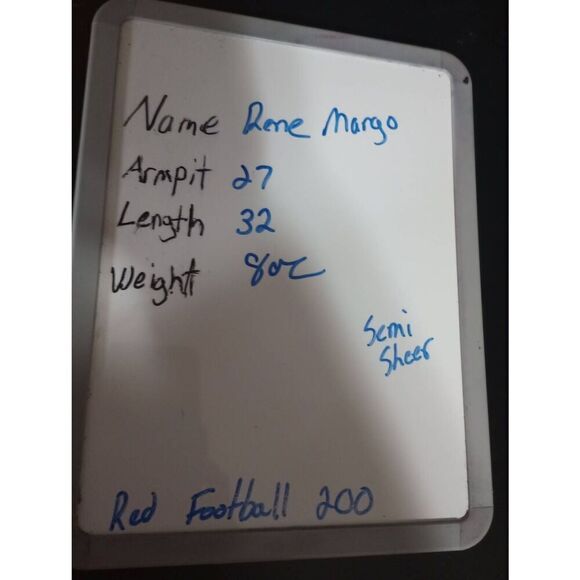 Name Rene Margo
Armpit 27
Length 32
Weight 8oz
Semi
Sheer
Red Football 200